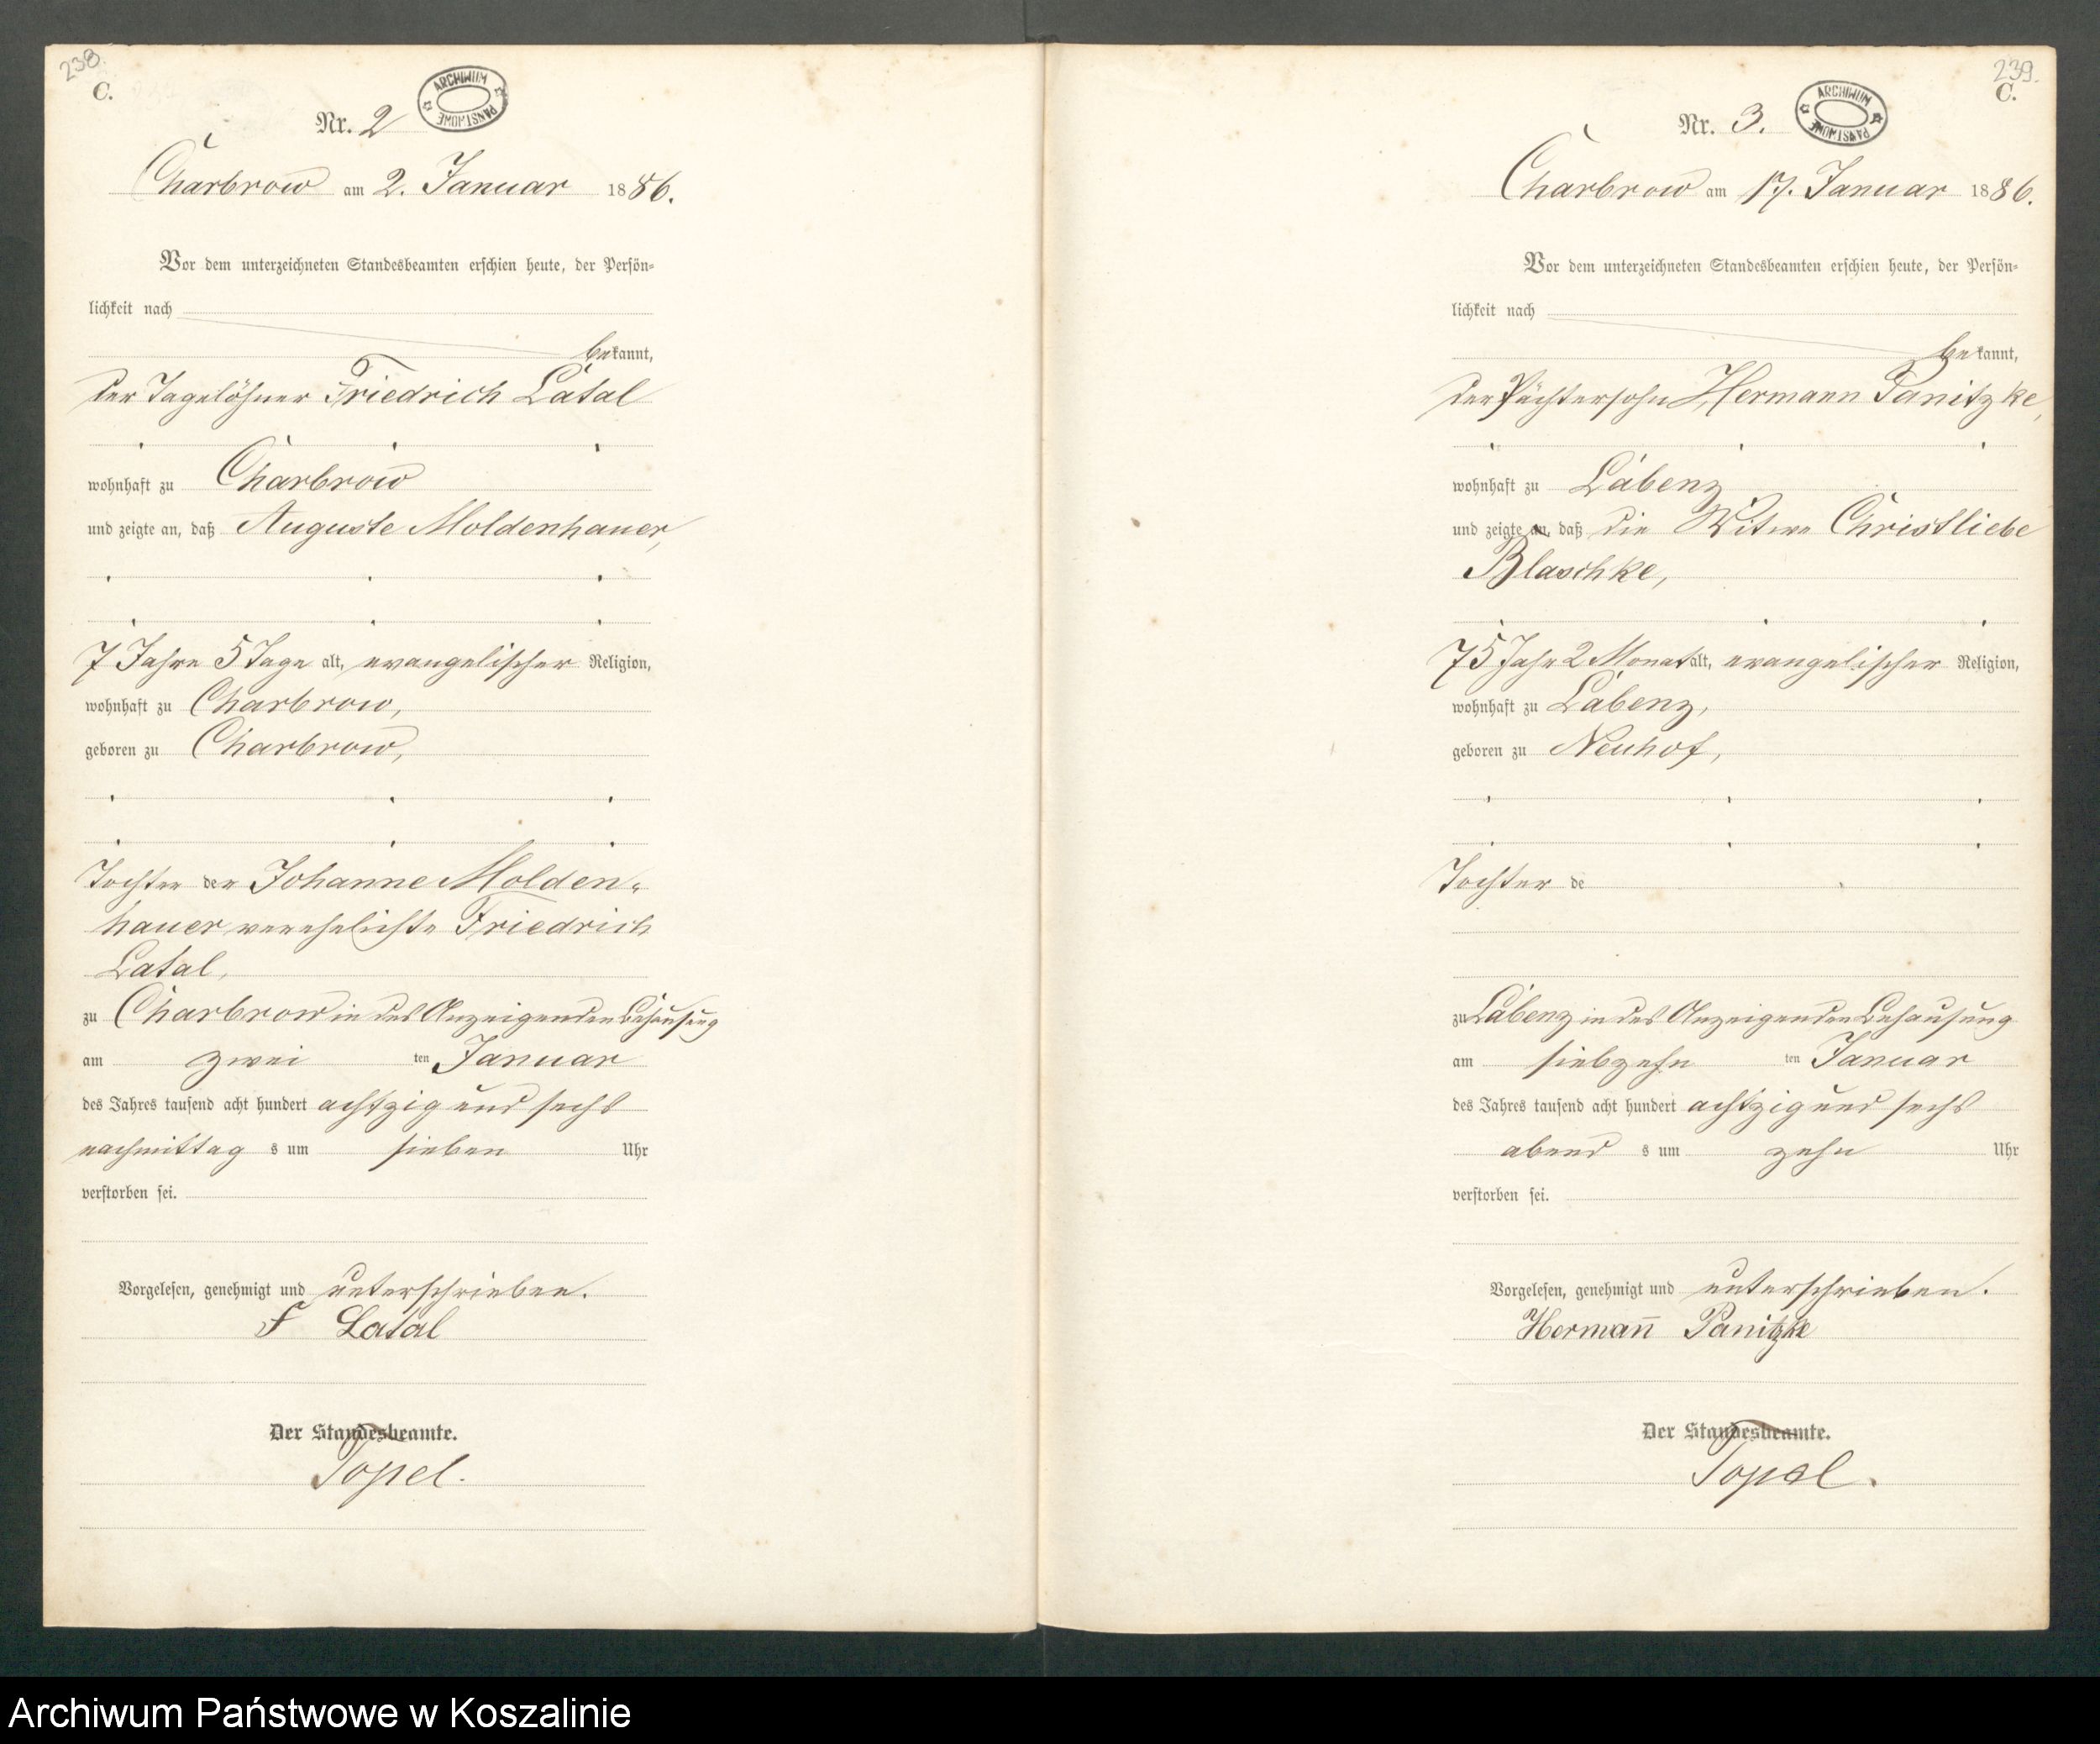 238.
C.
ARCHIWUM PAŃSTWOWE
Nr. 2
Charbrow am 2. Januar 1886.
Vor dem unterzeichneten Standesbeamten erschien heute, der Persön-
lichkeit nach
bekannt,
der Tagelöhner Friedrich Latal
wohnhaft zu Charbrow
und zeigte an, daß Auguste Moldenhauer,
7 Jahre 5 Tage alt, evangelischer Religion,
wohnhaft zu Charbrow,
geboren zu Charbrow,
Tochter der Johanne Molden-
hauer verehelichte Friedrich
Latal,
zu Charbrow in des Anzeigenden Behausung
am zwei ten Januar
des Jahres tausend acht hundert achtzig und sechs
nachmittag s um sieben Uhr
verstorben sei.
Vorgelesen, genehmigt und unterschrieben.
F Latal
Der Standesbeamte.
Topel.
239.
C.
ARCHIWUM PAŃSTWOWE
Nr. 3.
Charbrow am 17. Januar 1886.
Vor dem unterzeichneten Standesbeamten erschien heute, der Persön-
lichkeit nach
bekannt,
der Pächtersohn Hermann Panitzke,
wohnhaft zu Labenz
und zeigte an, daß die Witwe Christliebe
Blaschke,
75 Jahr 2 Monat alt, evangelischer Religion,
wohnhaft zu Labenz,
geboren zu Neuhof,
Tochter de
zu Labenz in des Anzeigenden Behausung
am siebzehn ten Januar
des Jahres tausend acht hundert achtzig und sechs
abend s um zehn Uhr
verstorben sei.
Vorgelesen, genehmigt und unterschrieben.
Hermann̄ Panitzke
Der Standesbeamte.
Topel.
Archiwum Państwowe w Koszalinie